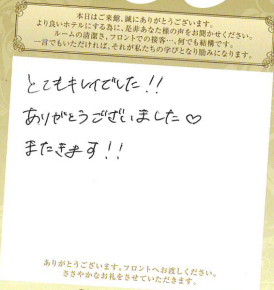 本日はご来館、誠にありがとうございます。
より良いホテルにする為に、是非あなた様の声をお聞かせください。
ルームの清潔さ、フロントでの接客…、何でも結構です。
一言でもいただければ、それが私たちの学びとなり励みになります。
とてもキレイでした!!
ありがとうございました♡
またきます!!
ありがとうございます。フロントへお渡しください。
ささやかなお礼をさせていただきます。